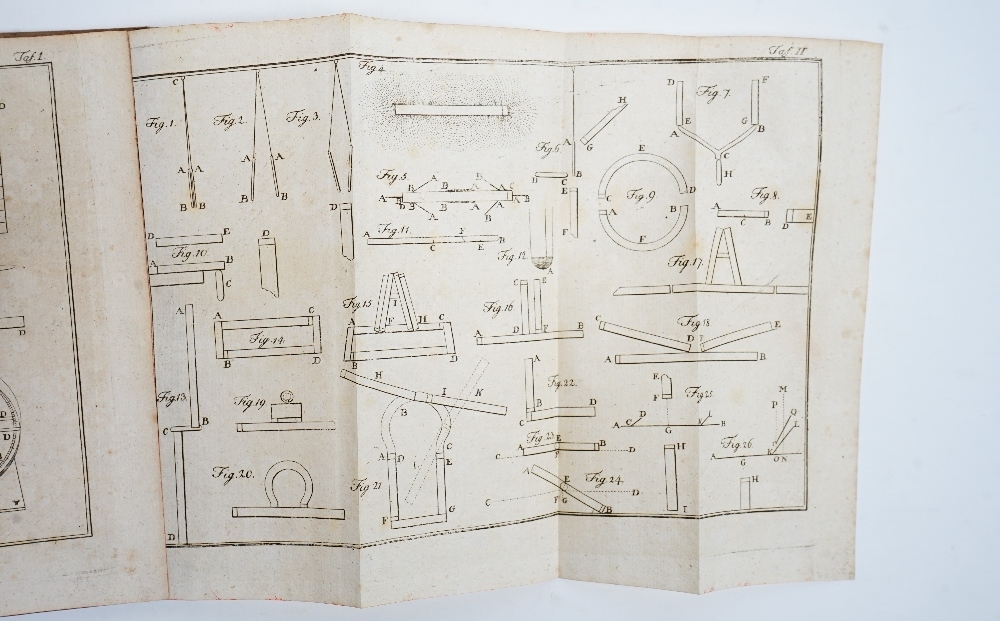 Taf. I
Taf. II
Fig. 1.
C
A A
B B
Fig. 2.
A A
B B
Fig. 3.
D
Fig. 4
Fig. 5.
A B A B A B
D B A B A B
Fig. 6
A B
D C
E
F
H
G
Fig. 7.
D F
E G
A B
C
H
Fig. 8.
A B
C D E
Fig. 9
E
C D
A B
F
Fig. 10
D E
A B
C
D
Fig. 11.
A F B
C E
Fig. 12.
A
Fig. 13.
A
B
C
D
Fig. 14.
A C
B D
Fig. 15.
I
A F H C
B D
Fig. 16
C E
A D F B
Fig. 17.
Fig. 18.
C D F E
A B
Fig. 19
Fig. 20.
Fig. 21
H I K
B
A D C
L E
F G
Fig. 22.
A
B
C D
Fig. 23.
A E B
C F D
Fig. 24.
A E
C F G D
B
Fig. 25
E
F
A C D I B
G
H
I
Fig. 26.
M
P Q
L
A G K O N
H
D
D
D